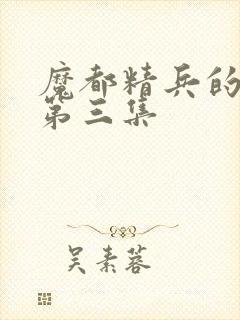 魔都精兵的
第三集
吴素蓉